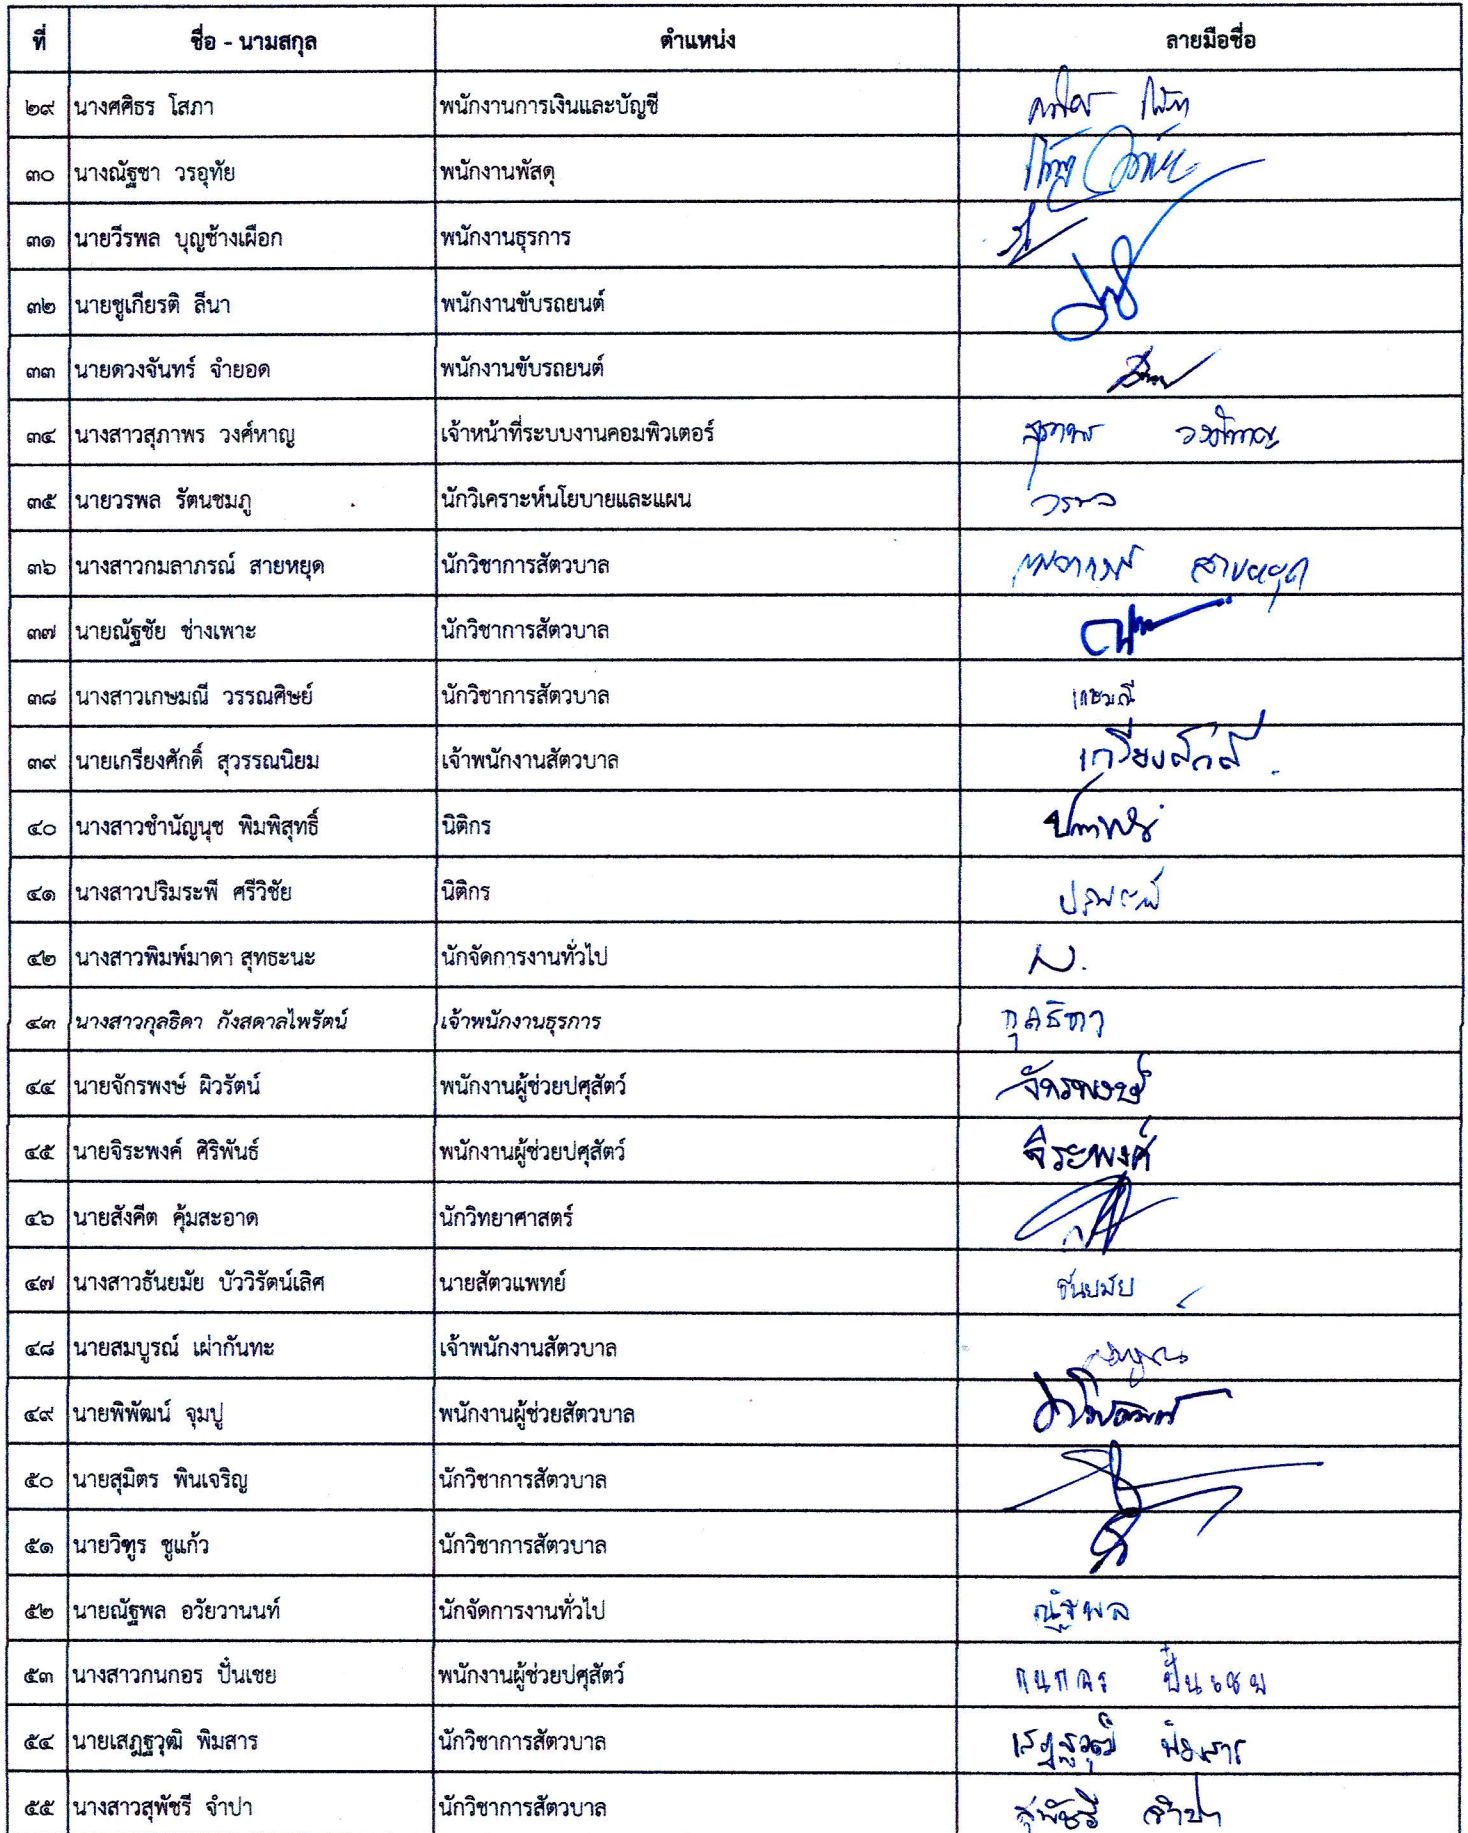 ที่ ชื่อ - นามสกุล ตำแหน่ง ลายมือชื่อ
๒๙ นางศศิธร โสภา พนักงานการเงินและบัญชี
๓๐ นางณัฐชา วรอุทัย พนักงานพัสดุ
๓๑ นายวีรพล บุญช้างเผือก พนักงานธุรการ
๓๒ นายชูเกียรติ ลีนา พนักงานขับรถยนต์
๓๓ นายดวงจันทร์ จำยอด พนักงานขับรถยนต์
๓๔ นางสาวสุภาพร วงศ์หาญ เจ้าหน้าที่ระบบงานคอมพิวเตอร์ สุภาพร วงศ์หาญ
๓๕ นายวรพล รัตนชมภู นักวิเคราะห์นโยบายและแผน วรพล
๓๖ นางสาวกมลาภรณ์ สายหยุด นักวิชาการสัตวบาล กมลาภรณ์ สายหยุด
๓๗ นายณัฐชัย ช่างเพาะ นักวิชาการสัตวบาล
๓๘ นางสาวเกษมณี วรรณศิษย์ นักวิชาการสัตวบาล เกษมณี
๓๙ นายเกรียงศักดิ์ สุวรรณนิยม เจ้าพนักงานสัตวบาล เกรียงศักดิ์
๔๐ นางสาวชำนัญนุช พิมพิสุทธิ์ นิติกร
๔๑ นางสาวปริมระพี ศรีวิชัย นิติกร
๔๒ นางสาวพิมพ์มาดา สุทธะนะ นักจัดการงานทั่วไป
๔๓ นางสาวกุลธิดา กังสดาลไพรัตน์ เจ้าพนักงานธุรการ กุลธิดา
๔๔ นายจักรพงษ์ ผิวรัตน์ พนักงานผู้ช่วยปศุสัตว์ จักรพงษ์
๔๕ นายจิระพงค์ ศิริพันธ์ พนักงานผู้ช่วยปศุสัตว์ จิระพงค์
๔๖ นายสังคีต คุ้มสะอาด นักวิทยาศาสตร์
๔๗ นางสาวธันยมัย บัววิรัตน์เลิศ นายสัตวแพทย์ ธันยมัย
๔๘ นายสมบูรณ์ เผ่ากันทะ เจ้าพนักงานสัตวบาล
๔๙ นายพิพัฒน์ จุมปู พนักงานผู้ช่วยสัตวบาล
๕๐ นายสุมิตร พินเจริญ นักวิชาการสัตวบาล
๕๑ นายวิฑูร ชูแก้ว นักวิชาการสัตวบาล
๕๒ นายณัฐพล อวัยวานนท์ นักจัดการงานทั่วไป ณัฐพล
๕๓ นางสาวกนกอร ปั๋นเชย พนักงานผู้ช่วยปศุสัตว์ กนกอร ปั๋นเชย
๕๔ นายเสฎฐวุฒิ พิมสาร นักวิชาการสัตวบาล เสฎฐวุฒิ พิมสาร
๕๕ นางสาวสุพัชรี จำปา นักวิชาการสัตวบาล สุพัชรี จำปา